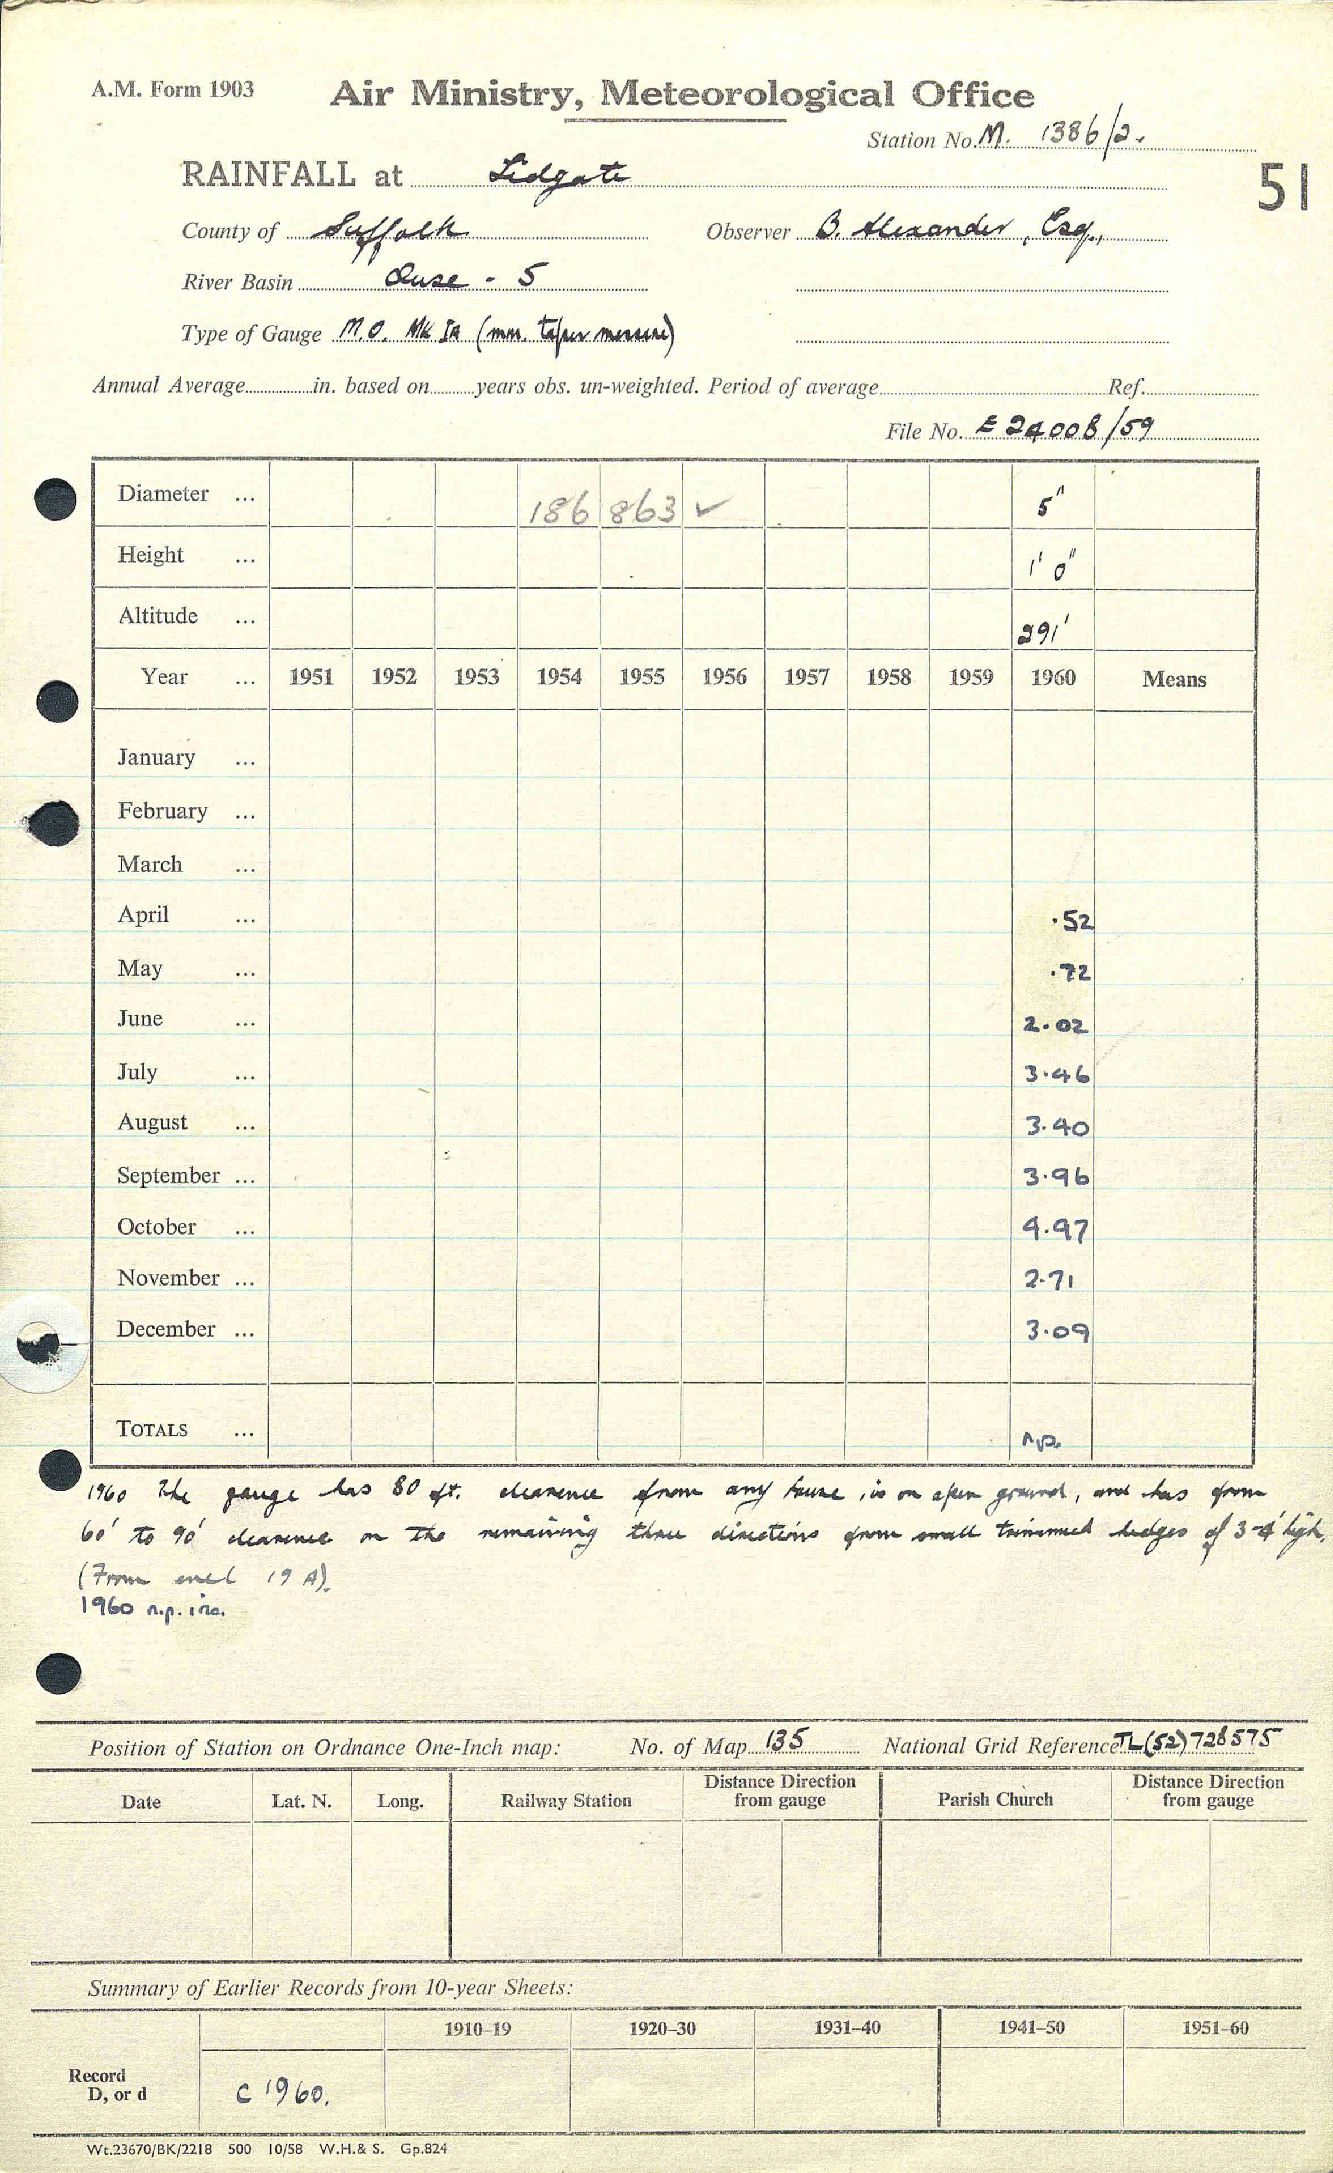 A.M. Form 1903 Air Ministry, Meteorological Office
Station No. M. 1386/2.
RAINFALL at Lidgate 51
County of Suffolk Observer B. Alexander, Esq.,
River Basin Ouse - 5
Type of Gauge M.O. Mk IA (mm. taper measure)
Annual Average in. based on years obs. un-weighted. Period of average Ref.
File No. E 24008/59
Diameter ... 186 863 ✓ 5"
Height ... 1' 0"
Altitude ... 291'
Year ... 1951 1952 1953 1954 1955 1956 1957 1958 1959 1960 Means
January ...
February ...
March ...
April ... .52
May ... .72
June ... 2.02
July ... 3.46
August ... 3.40
September ... 3.96
October ... 4.97
November ... 2.71
December ... 3.09
TOTALS ... n.p.
1960 The gauge has 80 ft. clearence from any house, is on open ground, and has from
60' to 90' clearence on the remaining three directions from small trimmed hedges of 3-4' high.
(From encl 19 A).
1960 n.p. inc.
Position of Station on Ordnance One-Inch map: No. of Map 135 National Grid Reference TL(52)728575
Date Lat. N. Long. Railway Station Distance Direction from gauge Parish Church Distance Direction from gauge
Summary of Earlier Records from 10-year Sheets:
1910-19 1920-30 1931-40 1941-50 1951-60
Record
D, or d C 1960.
Wt.23670/BK/2218 500 10/58 W.H.& S. Gp.824